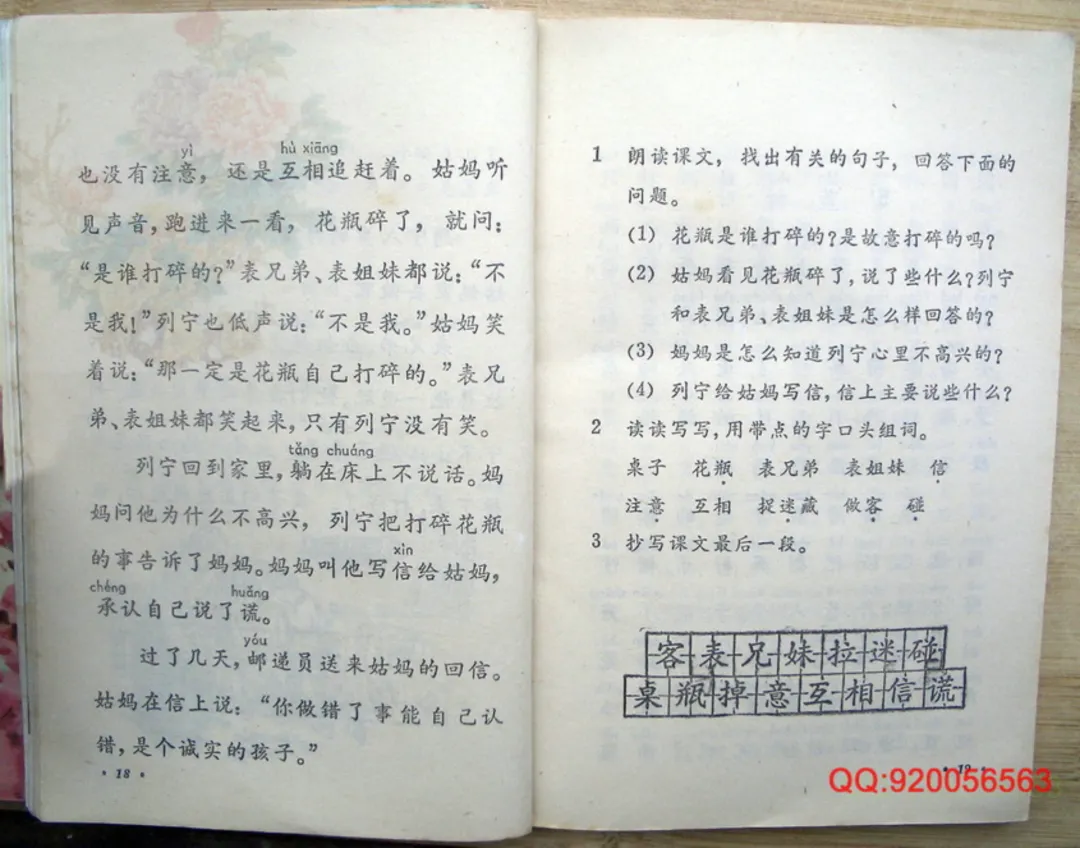 yì hù xiāng
也没有注意，还是互相追赶着。姑妈听
见声音，跑进来一看，花瓶碎了，就问：
“是谁打碎的？”表兄弟、表姐妹都说：“不
是我！”列宁也低声说：“不是我。”姑妈笑
着说：“那一定是花瓶自己打碎的。”表兄
弟、表姐妹都笑起来，只有列宁没有笑。
tǎng chuáng
列宁回到家里，躺在床上不说话。妈
妈问他为什么不高兴，列宁把打碎花瓶
xìn
的事告诉了妈妈。妈妈叫他写信给姑妈，
chéng huǎng
承认自己说了谎。
yóu
过了几天，邮递员送来姑妈的回信。
姑妈在信上说：“你做错了事能自己认
错，是个诚实的孩子。”
·18·
1 朗读课文，找出有关的句子，回答下面的
问题。
(1) 花瓶是谁打碎的？是故意打碎的吗？
(2) 姑妈看见花瓶碎了，说了些什么？列宁
和表兄弟、表姐妹是怎么样回答的？
(3) 妈妈是怎么知道列宁心里不高兴的？
(4) 列宁给姑妈写信，信上主要说些什么？
2 读读写写，用带点的字口头组词。
桌子 花瓶 表兄弟 表姐妹 信
注意 互相 捉迷藏 做客 碰
3 抄写课文最后一段。
客表兄妹拉迷碰
桌瓶掉意互相信谎
·19·
QQ:920056563